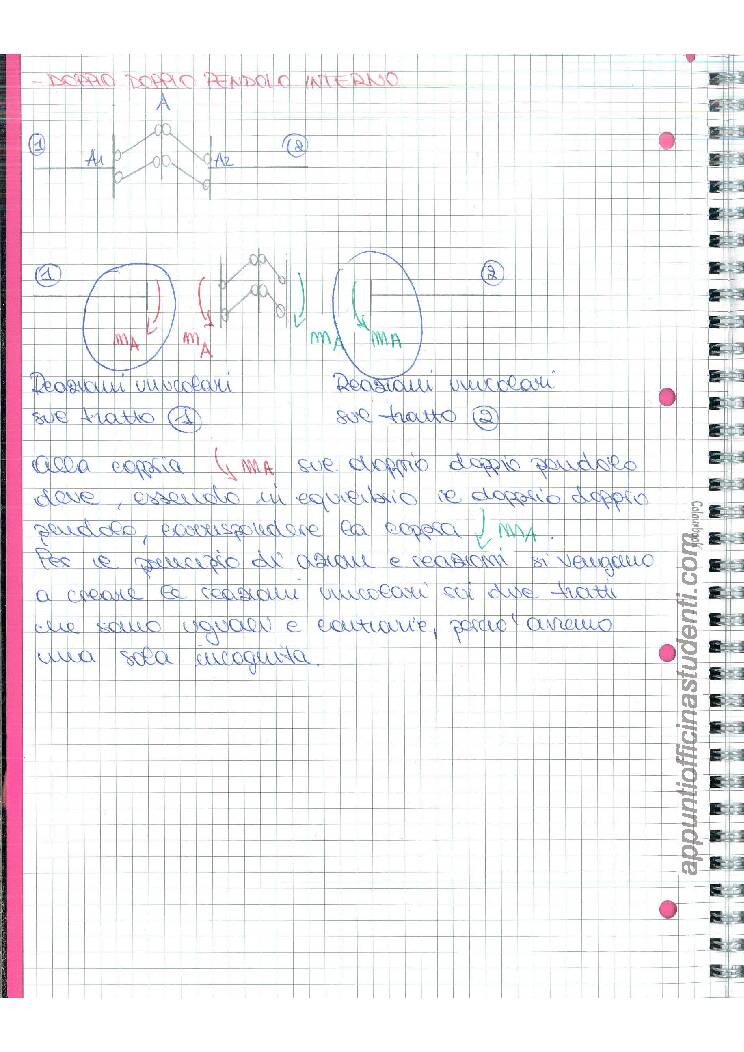 - DOPPIO DOPPIO PENDOLO INTERNO
A
1 A1 A2 2
1 2
mA mA mA mA
Reazioni vincolari
sul tratto 1
Reazioni vincolari
sul tratto 2
Alla coppia mA sul doppio doppio pendolo
deve, essendo in equilibrio il doppio doppio
pendolo, corrispondere la coppia mA.
Per il principio di azioni e reazioni si vengono
a creare le reazioni vincolari sui due tratti
che sono uguali e contrarie, perciò avremo
una sola incognita.
appuntiofficinastudenti.com